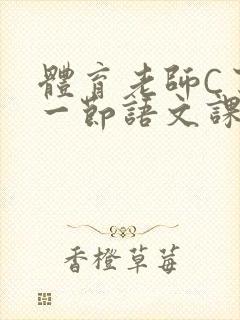 體育老師C
一節語文課
香橙草莓